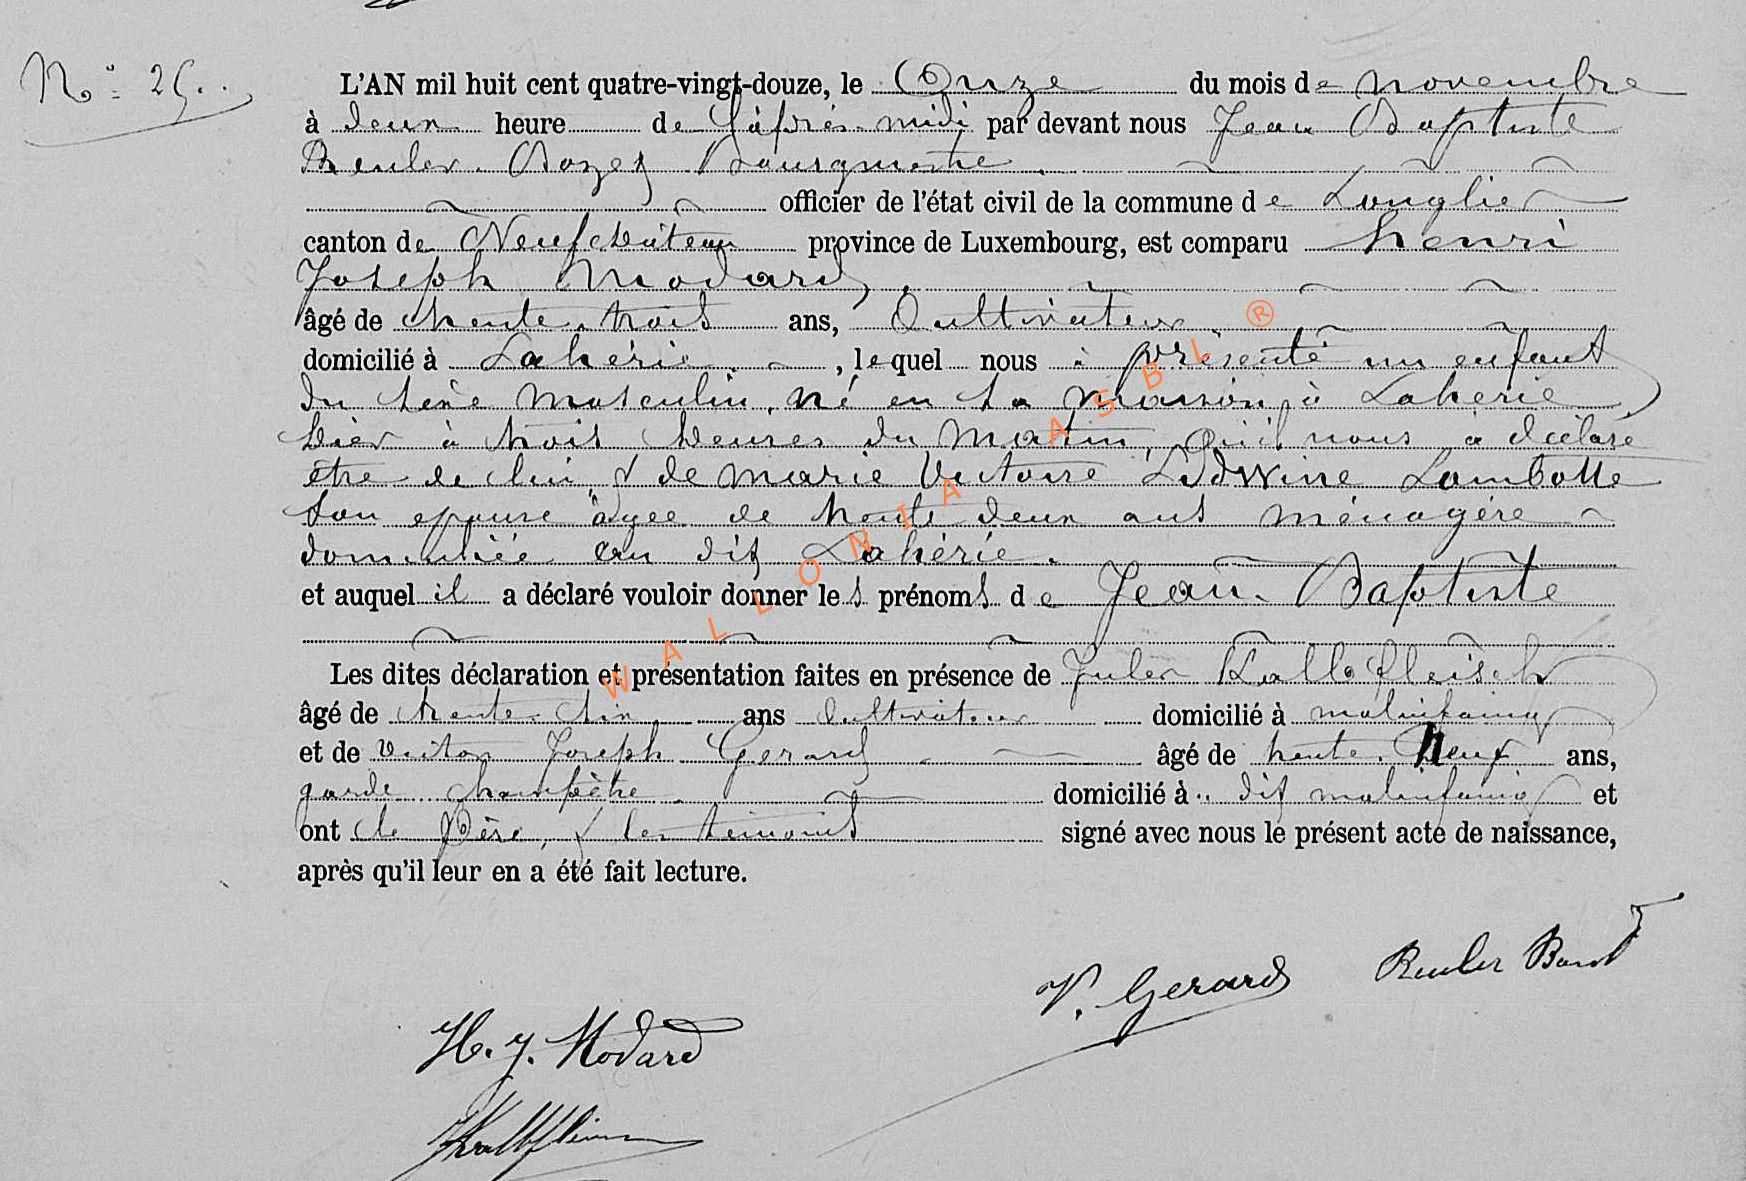 N.° 25.
L'AN mil huit cent quatre-vingt-douze, le Onze du mois de novembre
à deux heure de l'après-midi par devant nous Jean Baptiste
Reuler. Bourgmestre.
officier de l'état civil de la commune de Longlier
canton de Neufchâteau province de Luxembourg, est comparu henri
Joseph Modard,
âgé de trente-trois ans, Cultivateur.
domicilié à Lahérie. , lequel nous à présenté un enfant
du sexe masculin, né en sa maison, à Lahérie
hier à trois heures du matin, qu'il nous a déclaré
être de lui & de marie Victoire Lidwine Lambotte
son épouse âgée de trente deux ans ménagère
domiciliée au dit Lahérie.
et auquel il a déclaré vouloir donner les prénoms de Jean-Baptiste
Les dites déclaration et présentation faites en présence de Jules Kalbfleisch
âgé de trente-six ans Cultivateur domicilié à molinfaing
et de Victor Joseph Gerard âgé de trente-neuf ans,
garde champêtre. domicilié à dit molinfaing et
ont le Père, & les témoins signé avec nous le présent acte de naissance,
après qu'il leur en a été fait lecture.
V. Gerard Reuler
H. J. Modard
WALLONIA ASBL ®